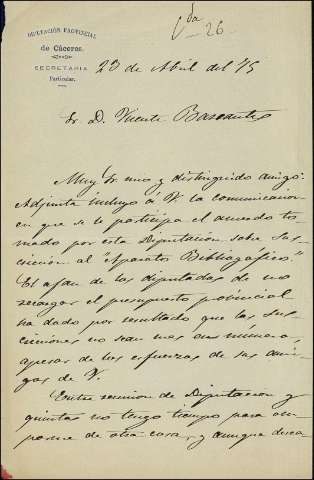 DIPUTACIÓN PROVINCIAL
de Cáceres.
SECRETARIA
Particular.
26
23 de Abril del 75
Sr. D. Vicente Barrantes
Muy Sr. mio y distinguido amigo:
Adjunta incluyo á V. la comunicacion
en que se le participa el acuerdo to-
mado por esta Diputacion sobre sus-
cricion al "Aparato Bibliografico."
El afan de los diputados de no
recargar el presupuesto provincial
ha dado por resultado que las sus-
criciones no sean mas en número,
apesar de los esfuerzos de sus ami-
gos de V.
Entre reunion de Diputacion y
quintas no tengo tiempo para ocu-
parme de otra cosa, y aunque desea-